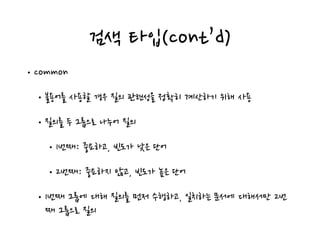 검색 타입(cont'd)
• common
• 불용어를 사용할 경우 질의 관련성을 정확히 계산하기 위해 사용
• 질의를 두 그룹으로 나누어 질의
• 1번째: 중요하고, 빈도가 낮은 단어
• 2번째: 중요하지 않고, 빈도가 높은 단어
• 1번째 그룹에 대해 질의를 먼저 수행하고, 일치하는 문서에 대해서만 2번
째 그룹으로 질의